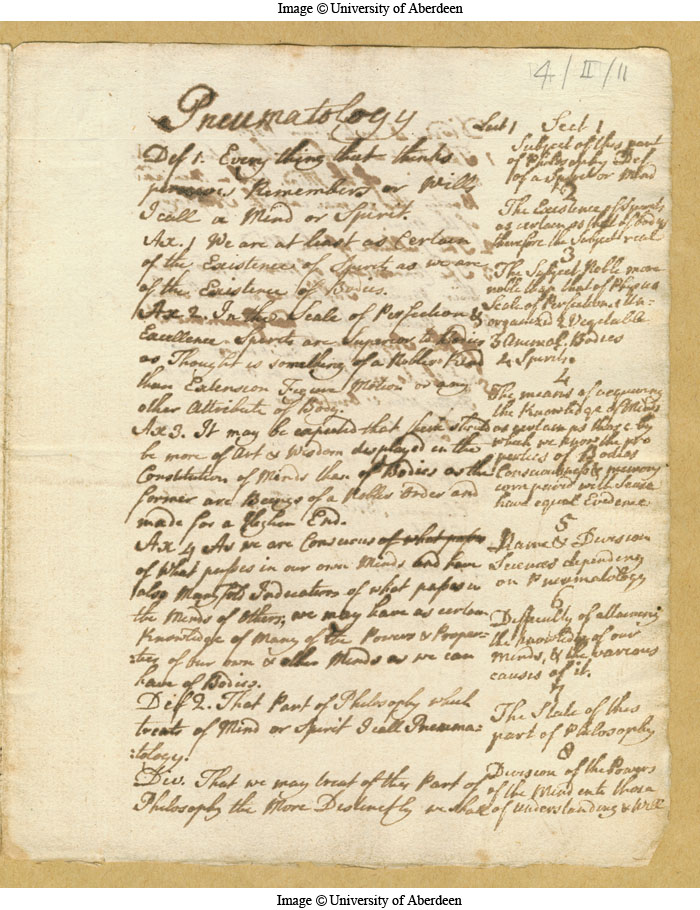 Image © University of Aberdeen
4/II/11
Pneumatology
Def 1. Every thing that thinks
perceives Remembers or Wills
I call a Mind or Spirit.
Ax. 1 We are at least as Certain
of the Existence of Spirit as we are
of the Existence of Bodies.
Ax 2. In the Scale of Perfection &
Excellence Spirits are Superior to Bodies
as Thought is something of a Nobler Kind
than Extension Figure Motion or any
other Attribute of Body.
Ax 3. It may be expected that there should
be more of Art & Wisdom displayed in the
Constitution of Minds than of Bodies as the
former are Beings of a Nobler Order and
made for a Higher End.
Ax 4 As we are Conscious of what passes
of What passes in our own Minds and have
also Manifold Indications of what passes in
the Minds of Others, we may have as certain
Knowledge of Many of the Powers & Proper-
:ties of our own & other Minds as we can
have of Bodies.
Def 2. That Part of Philosophy which
treats of Mind or Spirit I call Pneuma:
:tology.
Div. That we may treat of this Part of
Philosophy the More Distinctly we shall
Lect 1 Sect 1
Subject of this part
of Philosophy Def
of a Spirit or Mind
2
The Existence of Spirits
as certain as that of body
therefore the Subject real
3
The Subject Noble more
noble than that of Physics
Scale of Perfection 1 Un-
organized 2 Vegetable
3 Animal Bodies
4 Spirits.
4
The means of acquiring
the Knowledge of Minds
as certain as those by
which we know the pro
perties of Bodies
Consciousness & memory
compared with Sense
have equal Evidence
5
Name & Division
Sciences depending
on Pneumatology
6
Difficulty of attaining
the knowledge of our
minds, & the various
causes of it.
7
The State of this
part of Philosophy
8
Division of the Powers
of the Mind into those
of understanding & Will
Image © University of Aberdeen